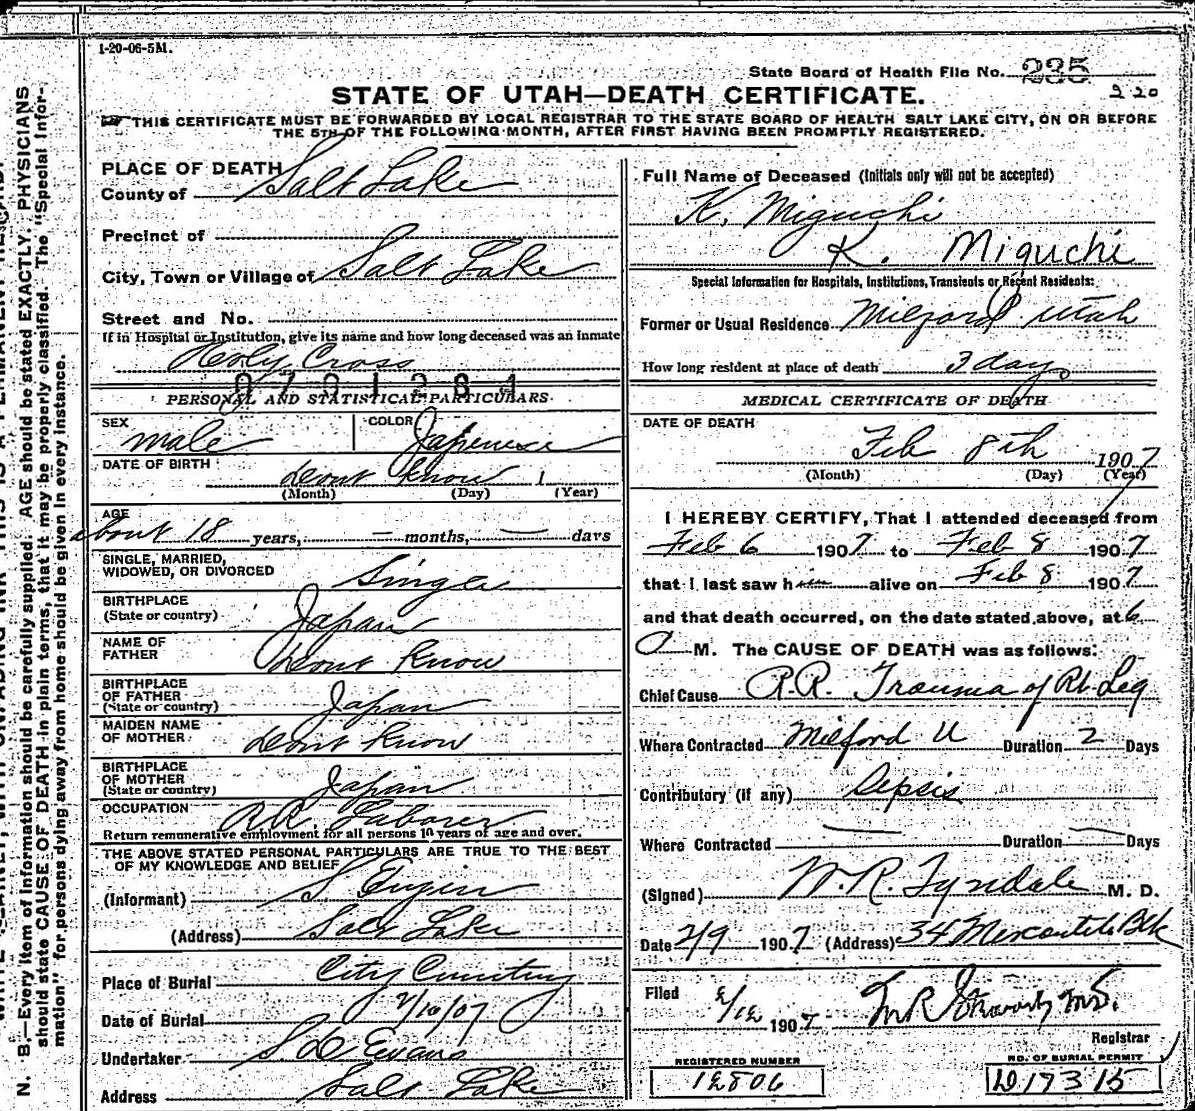 1-20-06-5M.
State Board of Health File No. 235
220
STATE OF UTAH—DEATH CERTIFICATE.
THIS CERTIFICATE MUST BE FORWARDED BY LOCAL REGISTRAR TO THE STATE BOARD OF HEALTH SALT LAKE CITY, ON OR BEFORE
THE 5TH OF THE FOLLOWING MONTH, AFTER FIRST HAVING BEEN PROMPTLY REGISTERED.
PLACE OF DEATH
County of Salt Lake
Precinct of
City, Town or Village of Salt Lake
Street and No.
If in Hospital or Institution, give its name and how long deceased was an inmate
Holy Cross
PERSONAL AND STATISTICAL PARTICULARS
SEX male COLOR Japenese
DATE OF BIRTH dont know 1
(Month) (Day) (Year)
AGE
about 18 years, — months, — days
SINGLE, MARRIED,
WIDOWED, OR DIVORCED Single
BIRTHPLACE
(State or country) Japan
NAME OF
FATHER dont know
BIRTHPLACE
OF FATHER
(State or country) Japan
MAIDEN NAME
OF MOTHER dont know
BIRTHPLACE
OF MOTHER
(State or country) Japan
OCCUPATION R.R. Laborer
Return remunerative employment for all persons 10 years of age and over.
THE ABOVE STATED PERSONAL PARTICULARS ARE TRUE TO THE BEST
OF MY KNOWLEDGE AND BELIEF
(Informant) S
(Address) Salt Lake
Place of Burial City
Date of Burial 2/10/07
Undertaker S. D. Evans
Address Salt Lake
Full Name of Deceased (Initials only will not be accepted)
K. Miguchi
K. Miguchi
Special Information for Hospitals, Institutions, Transients or Recent Residents:
Former or Usual Residence Milford Utah
How long resident at place of death 3 days
MEDICAL CERTIFICATE OF DEATH
DATE OF DEATH
Feb 8th 1907
(Month) (Day) (Year)
I HEREBY CERTIFY, That I attended deceased from
Feb 6 1907 to Feb 8 1907
that I last saw him alive on Feb 8 1907
and that death occurred, on the date stated above, at 6
M. The CAUSE OF DEATH was as follows:
Chief Cause R.R. Trauma of Rt. Leg
Where Contracted Milford U Duration 2 Days
Contributory (if any) Sepsis
Where Contracted — Duration — Days
(Signed) W. R. Tyndale M. D.
Date 2/9 1907 (Address) 34 Mercantile Blk
Filed 2/12 1907
Registrar
REGISTERED NUMBER
12806
NO. OF BURIAL PERMIT
D17315
N. B.—Every item of information should be carefully supplied. AGE should be stated EXACTLY. PHYSICIANS
should state CAUSE OF DEATH in plain terms, that it may be properly classified. The "Special Infor-
mation" for persons dying away from home should be given in every instance.